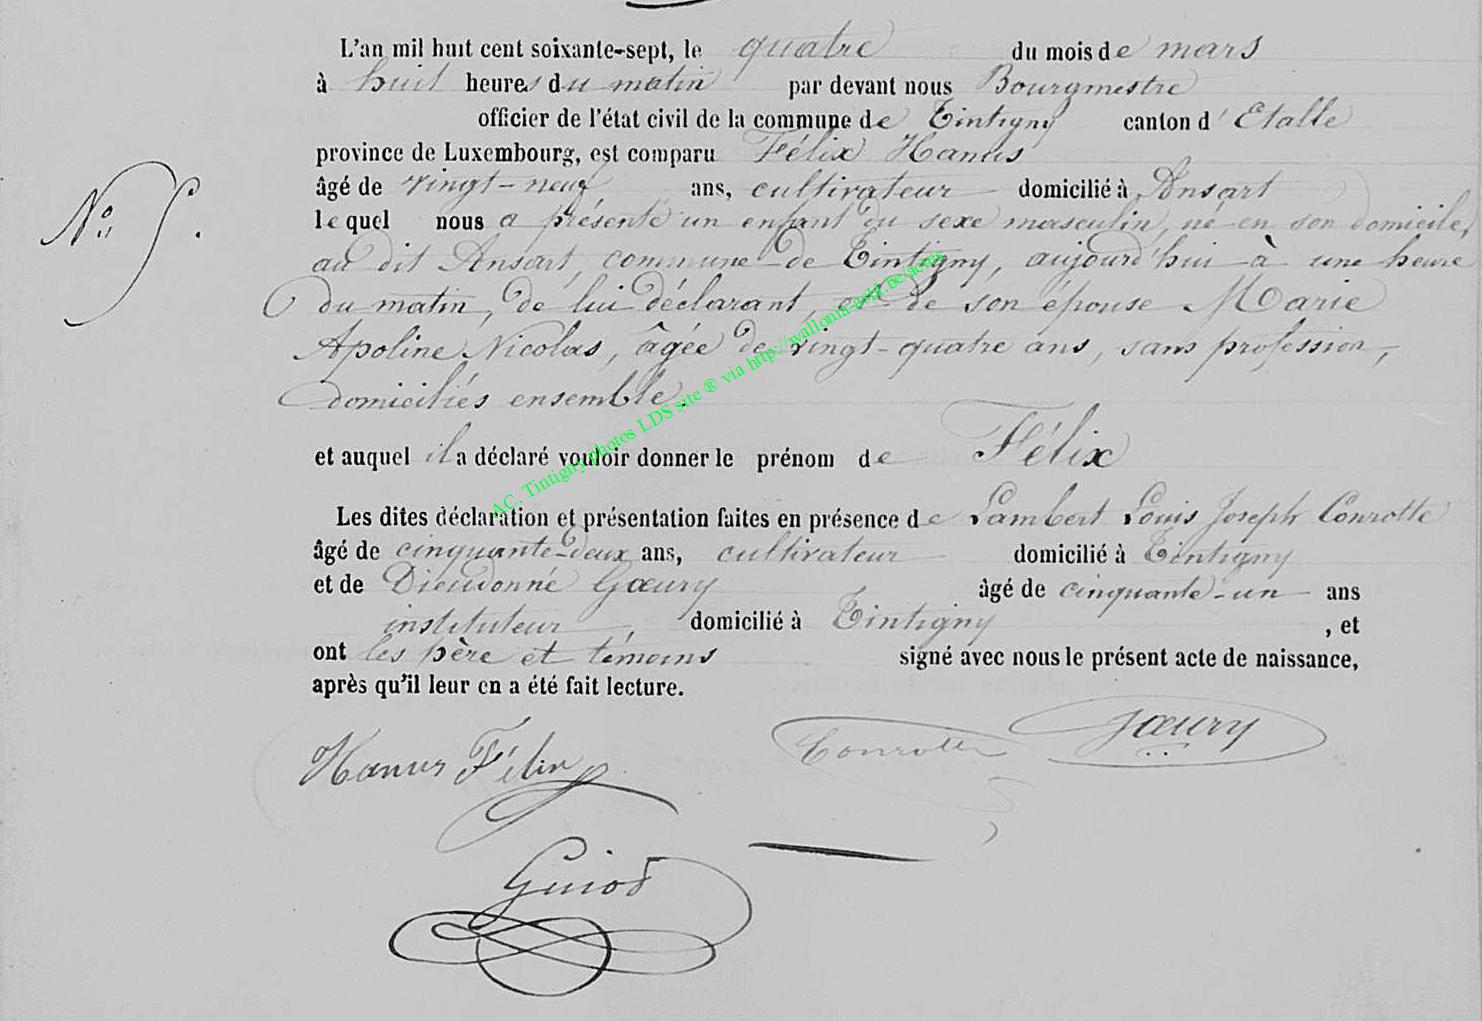 L'an mil huit cent soixante-sept, le quatre du mois de mars
à huit heures du matin par devant nous Bourgmestre
officier de l'état civil de la commune de Tintigny canton d'Etalle
province de Luxembourg, est comparu Félix Hanus
âgé de vingt-neuf ans, cultivateur domicilié à Ansart
lequel nous a présenté un enfant du sexe masculin, né en son domicile,
au dit Ansart, commune de Tintigny, aujourd'hui à une heure
du matin, de lui déclarant, et de son épouse Marie
Apoline Nicolas, âgée de vingt-quatre ans, sans profession,
domiciliés ensemble.
et auquel il a déclaré vouloir donner le prénom de Félix
Les dites déclaration et présentation faites en présence de Lambert Louis Joseph Conrotte
âgé de cinquante-deux ans, cultivateur domicilié à Tintigny
et de Dieudonné Gœury âgé de cinquante-un ans
instituteur, domicilié à Tintigny, et
ont les père et témoins signé avec nous le présent acte de naissance,
après qu'il leur en a été fait lecture.
Hanus Félix Conrotte Gœury
Guiot
AC. Tintigny photos LDS site ® via http://wallonia-asbl.be/actes